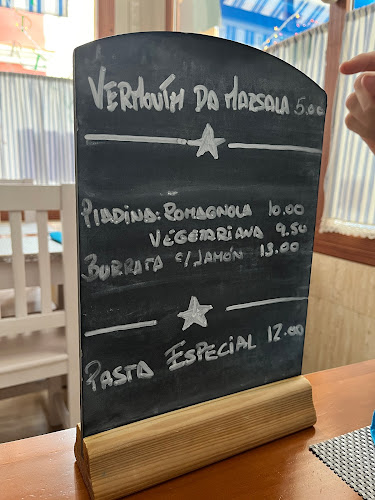 VERMOUTH DA MARSALA 5.00
PIADINA: ROMAGNOLA 10.00
VEGETARIANA 9.50
BURRATA C/JAMÓN 13.00
PASTA ESPECIAL 12.00